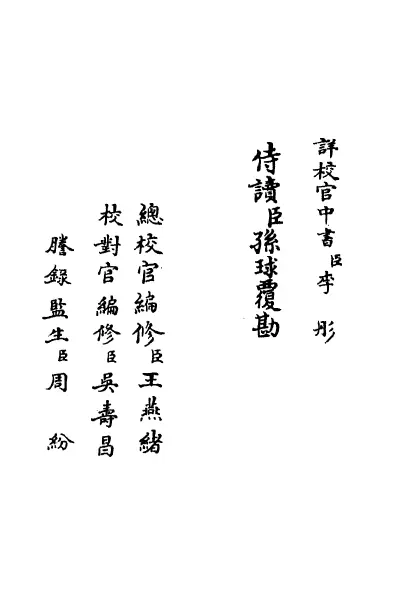 詳校官中書臣李彤
侍讀臣孫球覆勘
總校官編修臣王燕緒
校對官編修臣吳壽昌
謄錄監生臣周紛